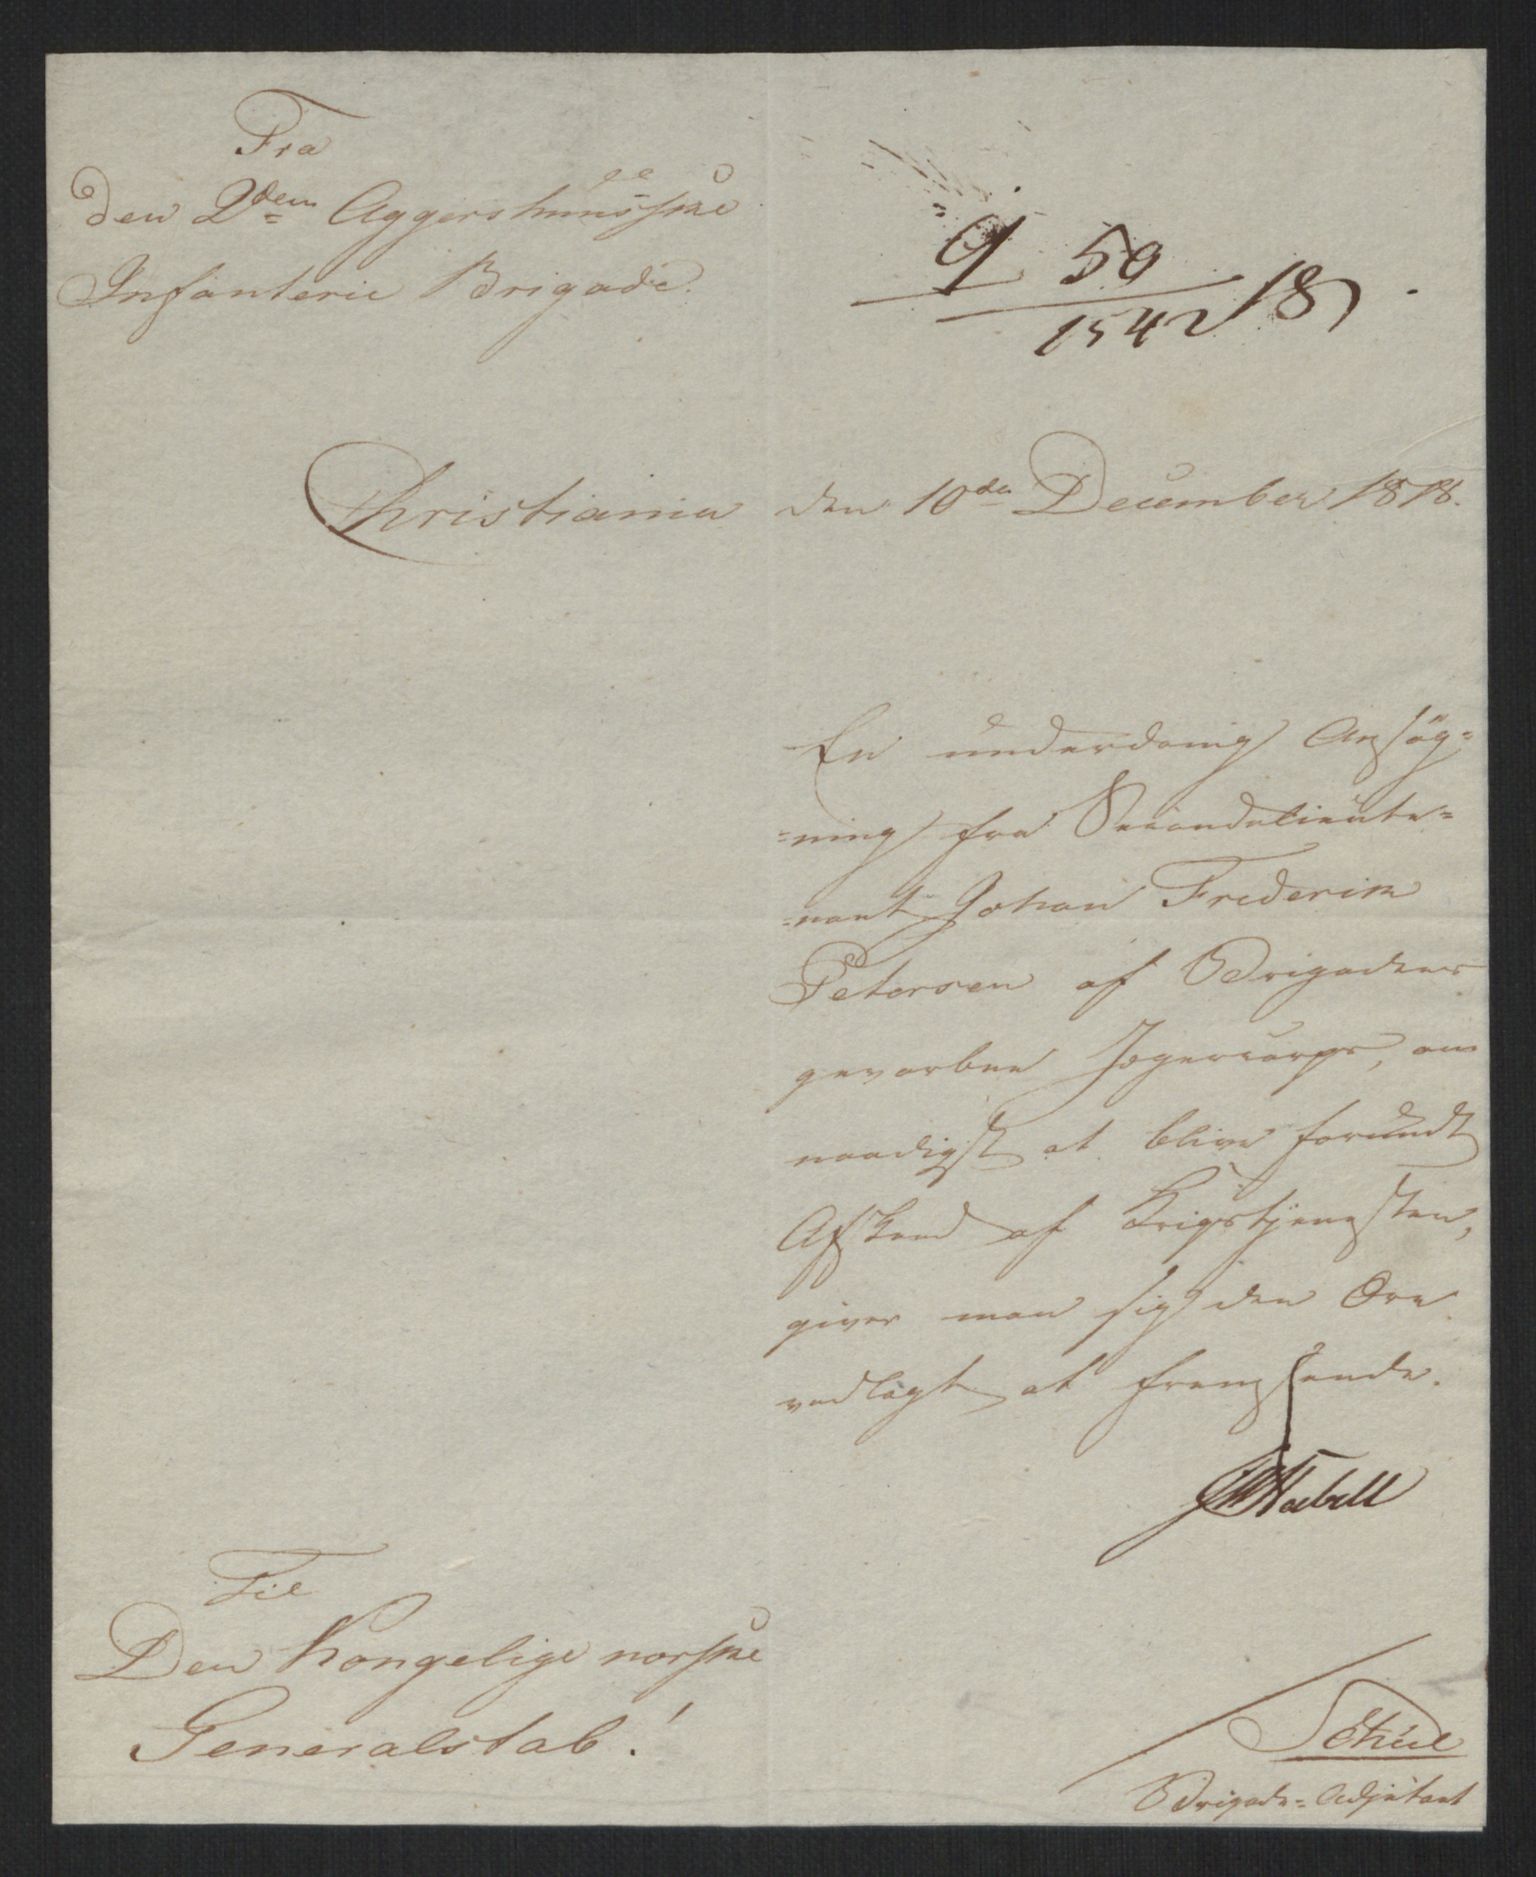 Fra
den 2den Aggershuusske
Infanterie Brigade.
9 50
1542 18
Christiania den 10de December 1818.
En underdanig Ansøg=
=ning fra Secondelieute=
=nant Johan Frederik
Petersen af Brigadens
gevorbne Jægercorps, om
naadigst at blive forundt
Afskeed af Krigstjenesten,
giver man sig den Ære
vedlagt at fremsende.
Stabell
Til
Den kongelige norske
Generalstab!
Brigade=Adjutant